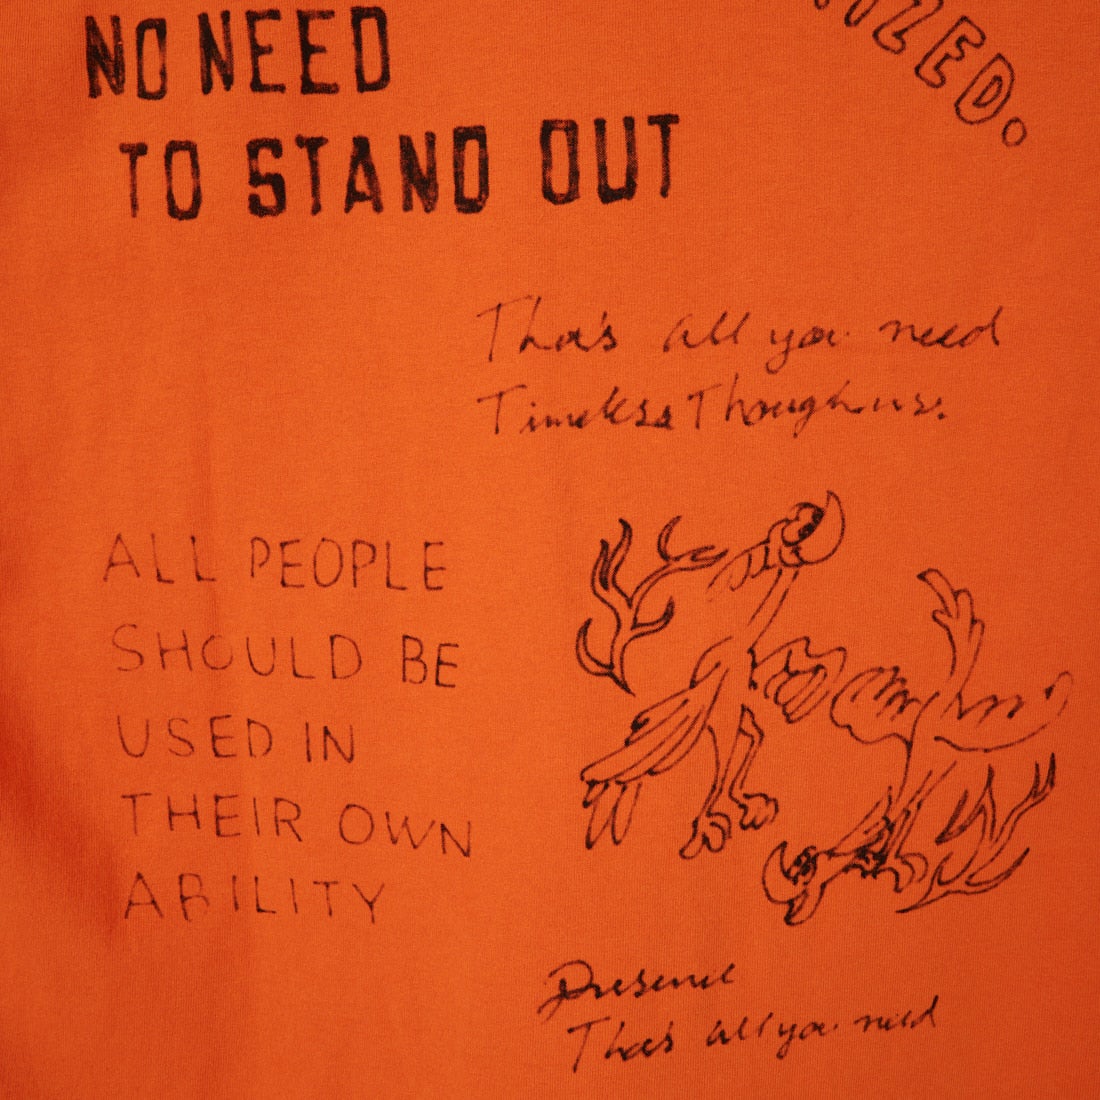 NO NEED
TO STAND OUT
IZED.
Tha's all you need
Timeless Though us.
ALL PEOPLE
SHOULD BE
USED IN
THEIR OWN
ABILITY
Presence
Tha's all you need